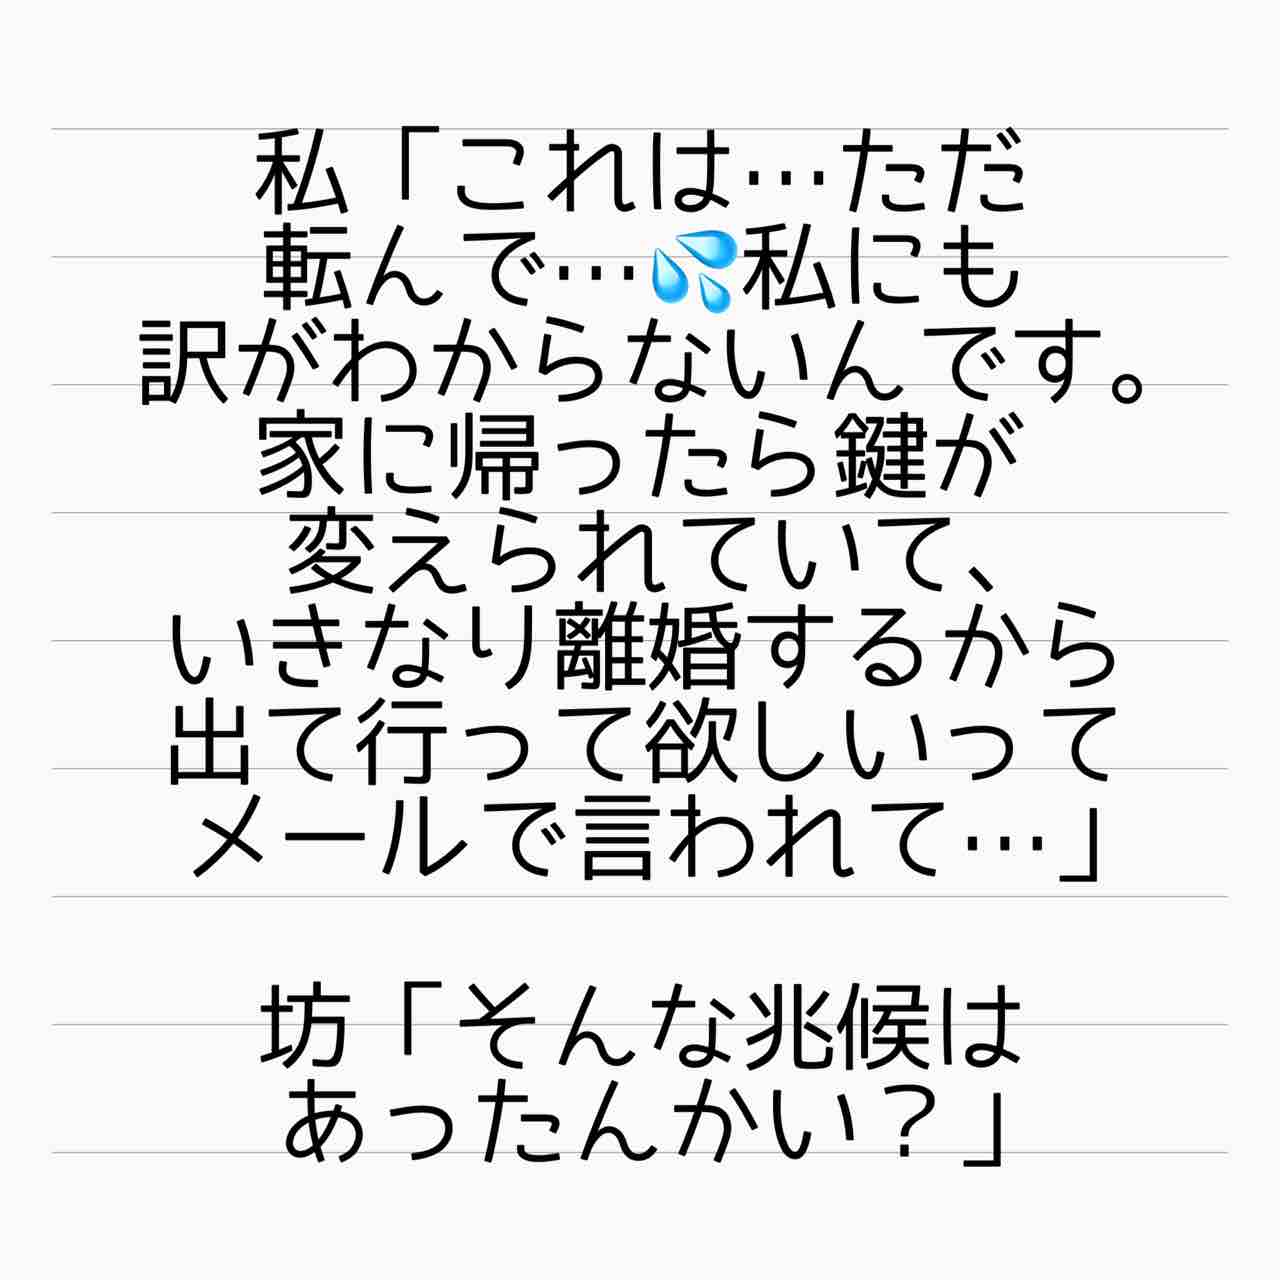 私「これは…ただ
転んで…💦私にも
訳がわからないんです。
家に帰ったら鍵が
変えられていて、
いきなり離婚するから
出て行って欲しいって
メールで言われて…」
坊「そんな兆候は
あったんかい？」